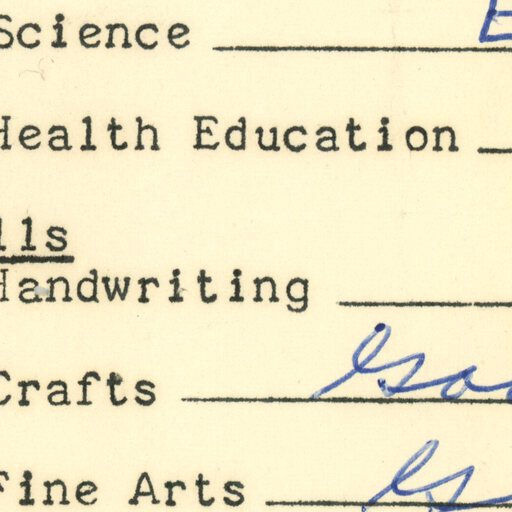 Science E
Health Education
lls
Handwriting
Crafts
Fine Arts